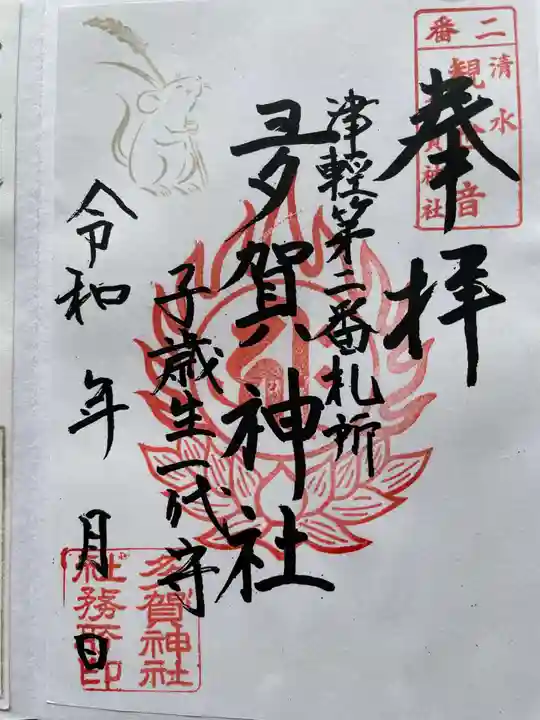 奉拝
二番
清水
観音
賀神社
津輕第二番札所
多賀神社
子歳生一代守
令和 年 月 日
多賀神社
社務所印